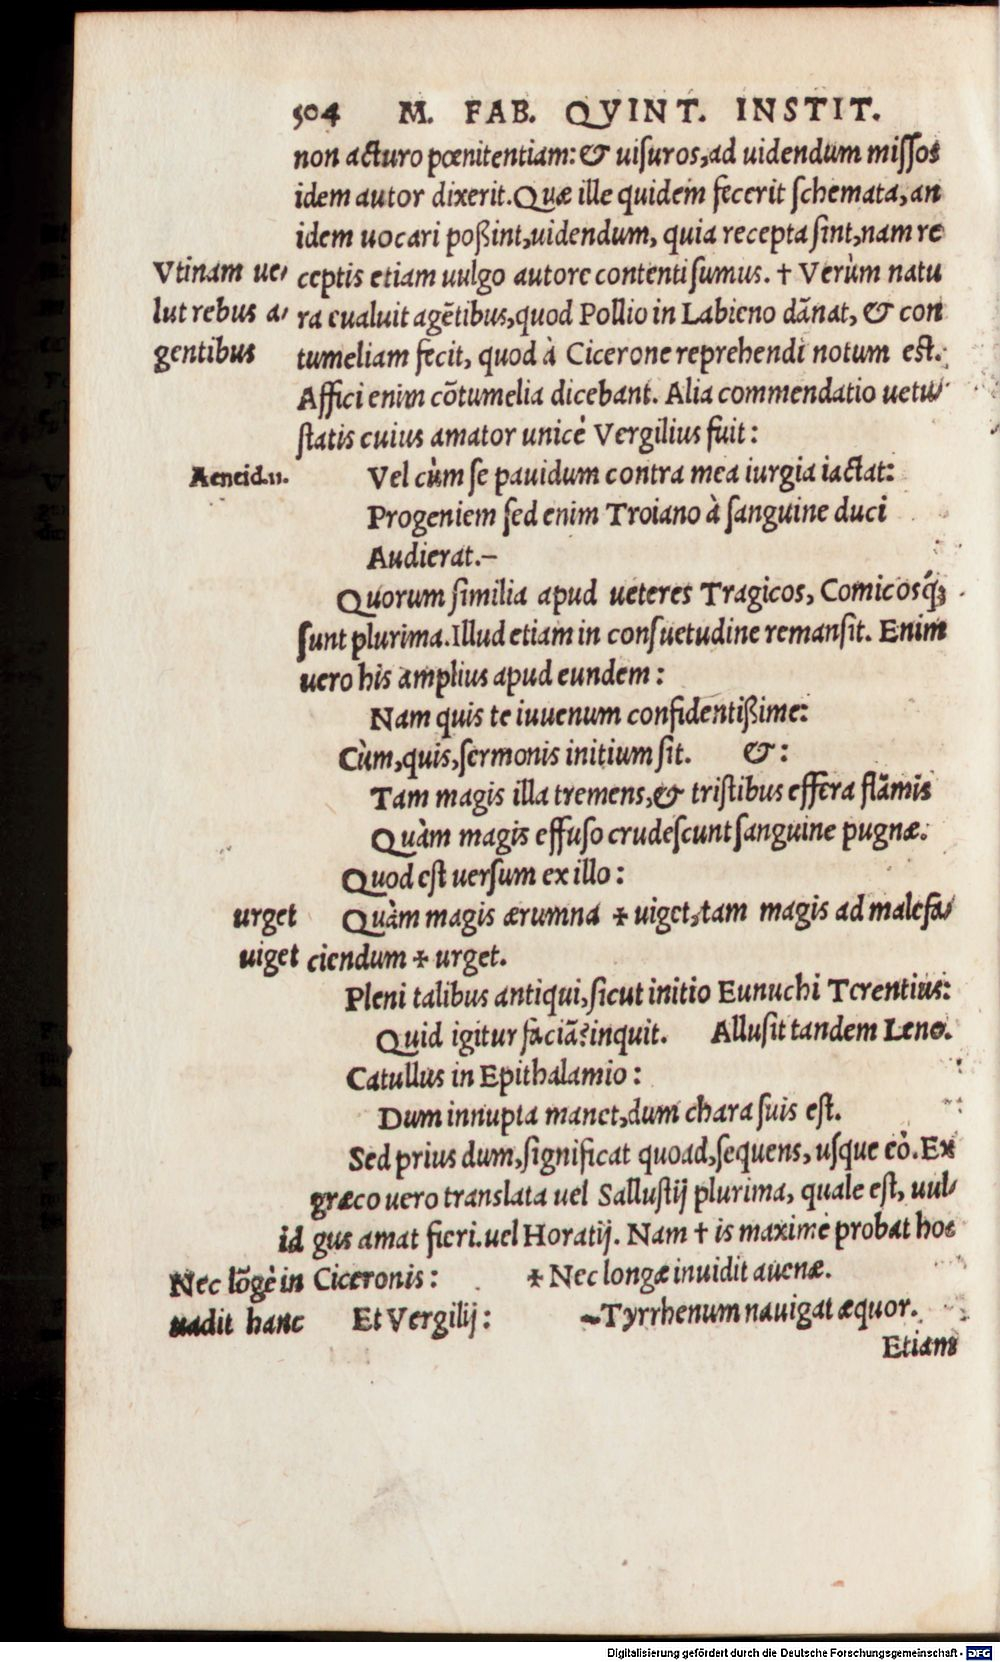 504 M. FAB. QVINT. INSTIT.
non acturo pœnitentiam: & uiſuros, ad uidendum miſſos
idem autor dixerit. Quæ ille quidem fecerit ſchemata, an
idem uocari poßint, uidendum, quia recepta ſint, nam re
ceptis etiam uulgo autore contenti ſumus. † Verùm natu
ra eualuit agẽtibus, quod Pollio in Labieno dãnat, & con
tumeliam fecit, quod à Cicerone reprehendi notum est.
Affici enim cõtumelia dicebant. Alia commendatio uetu-
ſtatis cuius amator unicè Vergilius fuit:
Vel cùm ſe pauidum contra mea iurgia iactat:
Progeniem ſed enim Troiano à ſanguine duci
Audierat.–
Quorum ſimilia apud ueteres Tragicos, Comicosq́;
ſunt plurima. Illud etiam in conſuetudine remanſit. Enim
uero his amplius apud eundem:
Nam quis te iuuenum confidentißime:
Cùm, quis, ſermonis initium ſit. &:
Tam magis illa tremens, & triſtibus effera flãmis
Quàm magis effuſo crudeſcunt ſanguine pugnæ.
Quod eſt uerſum ex illo:
Quàm magis ærumna ✠ uiget, tam magis ad malefa-
ciendum ✠ urget.
Pleni talibus antiqui, ſicut initio Eunuchi Terentius:
Quid igitur faciã? inquit. Alluſit tandem Leno.
Catullus in Epithalamio:
Dum innupta manet, dum chara ſuis eſt.
Sed prius dum, ſignificat quoad, ſequens, uſque eò. Ex
græco uero translata uel Salluſtij plurima, quale eſt, uul-
gus amat fieri. uel Horatij. Nam † is maximè probat hoc
Ciceronis: ✠ Nec longæ inuidit auenæ.
Et Vergilij: ~Tyrrhenum nauigat æquor.
Etiam
Vtinam ue-
lut rebus a-
gentibus
Aeneid.11.
urget
uiget
id
Nec lõgè in
uadit hanc
Digitalisierung gefördert durch die Deutsche Forschungsgemeinschaft - DFG